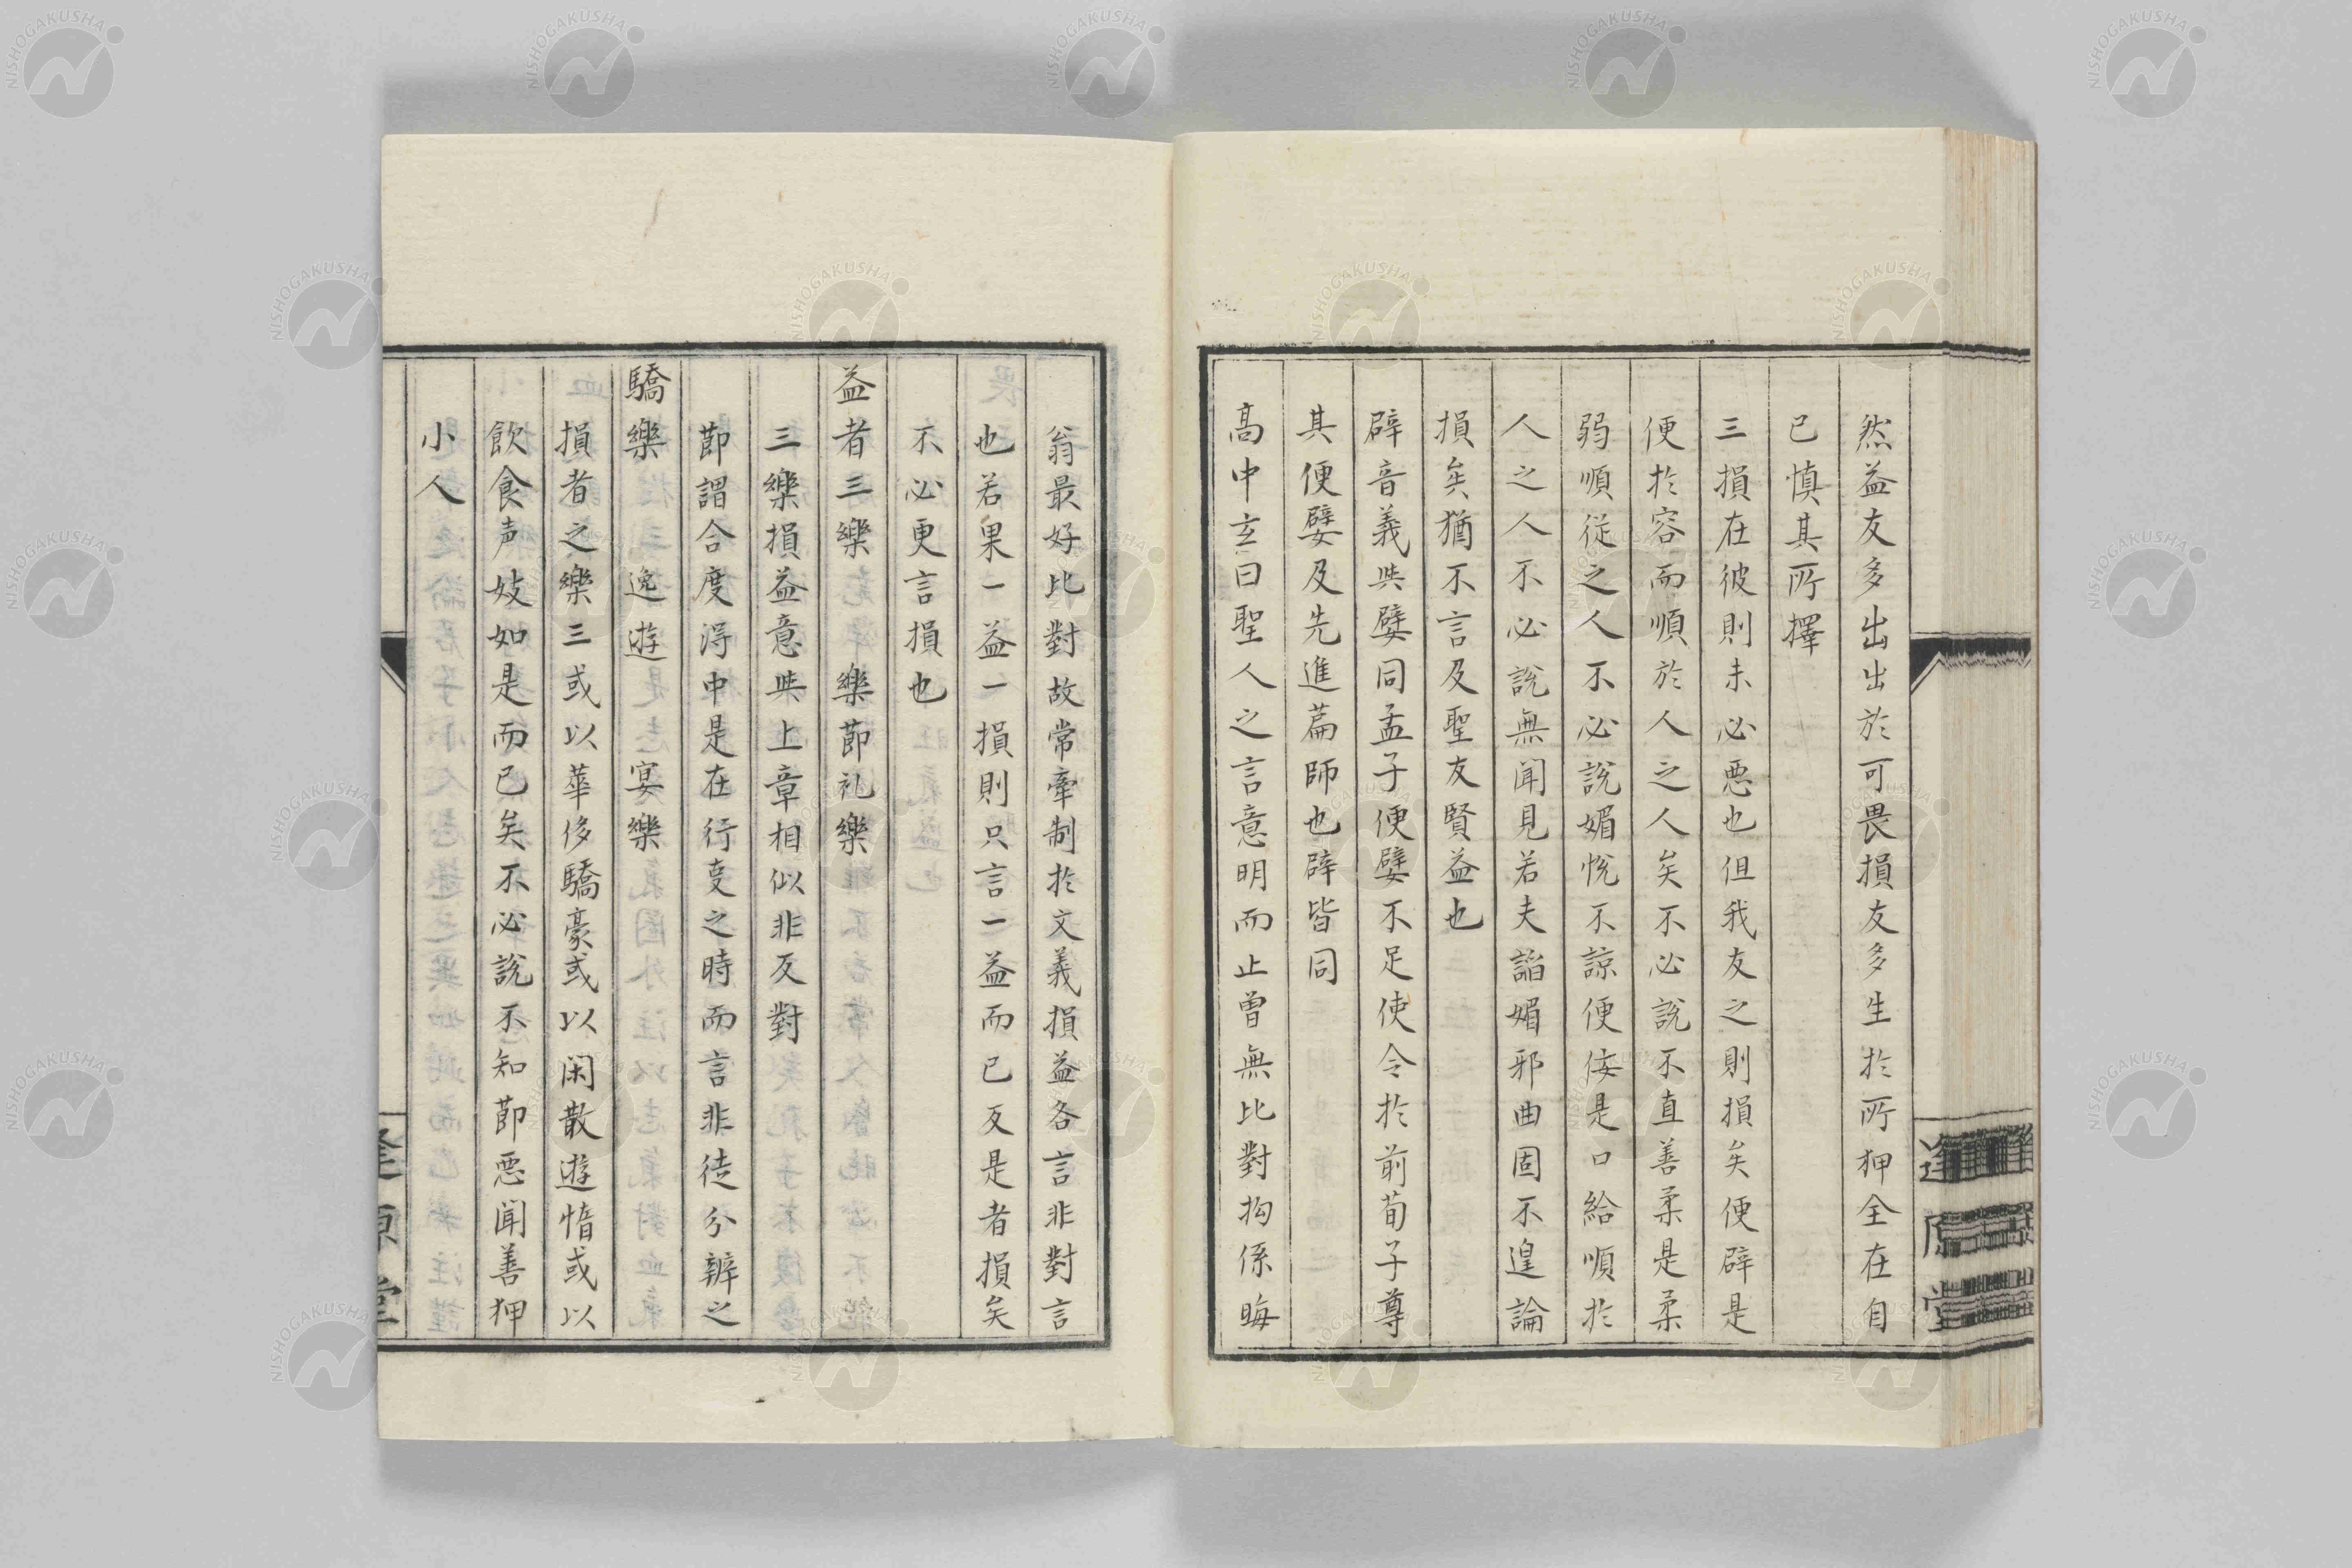 然益友多出出於可畏損友多生於所狎全在自
已慎其所擇
三損在彼則未必悪也但我友之則損矣便辟是
便於容而順於人之人矣不必説不直善柔是柔
弱順從之人不必說媚悅不諒便佞是口給順於
人之人不必說無聞見若夫諂媚邪曲固不遑論
損矣猶不言及聖友賢益也
辟音義與嬖同孟子便嬖不足使令於前荀子尊
其便嬖及先進篇師也辟皆同
高中玄曰聖人之言意明而止曾無比對拘係晦
翁最好比對故常牽制於文義損益各言非對言
也若果一益一損則只言一益而已反是者損矣
不必更言損也
益者三樂　樂節礼樂
三樂損益意與上章相似非反對
節謂合度得中是在行
之時而言非徒分辨之
驕樂　逸遊　宴樂
損者之樂三或以華侈驕豪或以閑散遊惰或以
飲食声妓如是而已矣不必說不知節悪聞善狎
小人
逢原堂